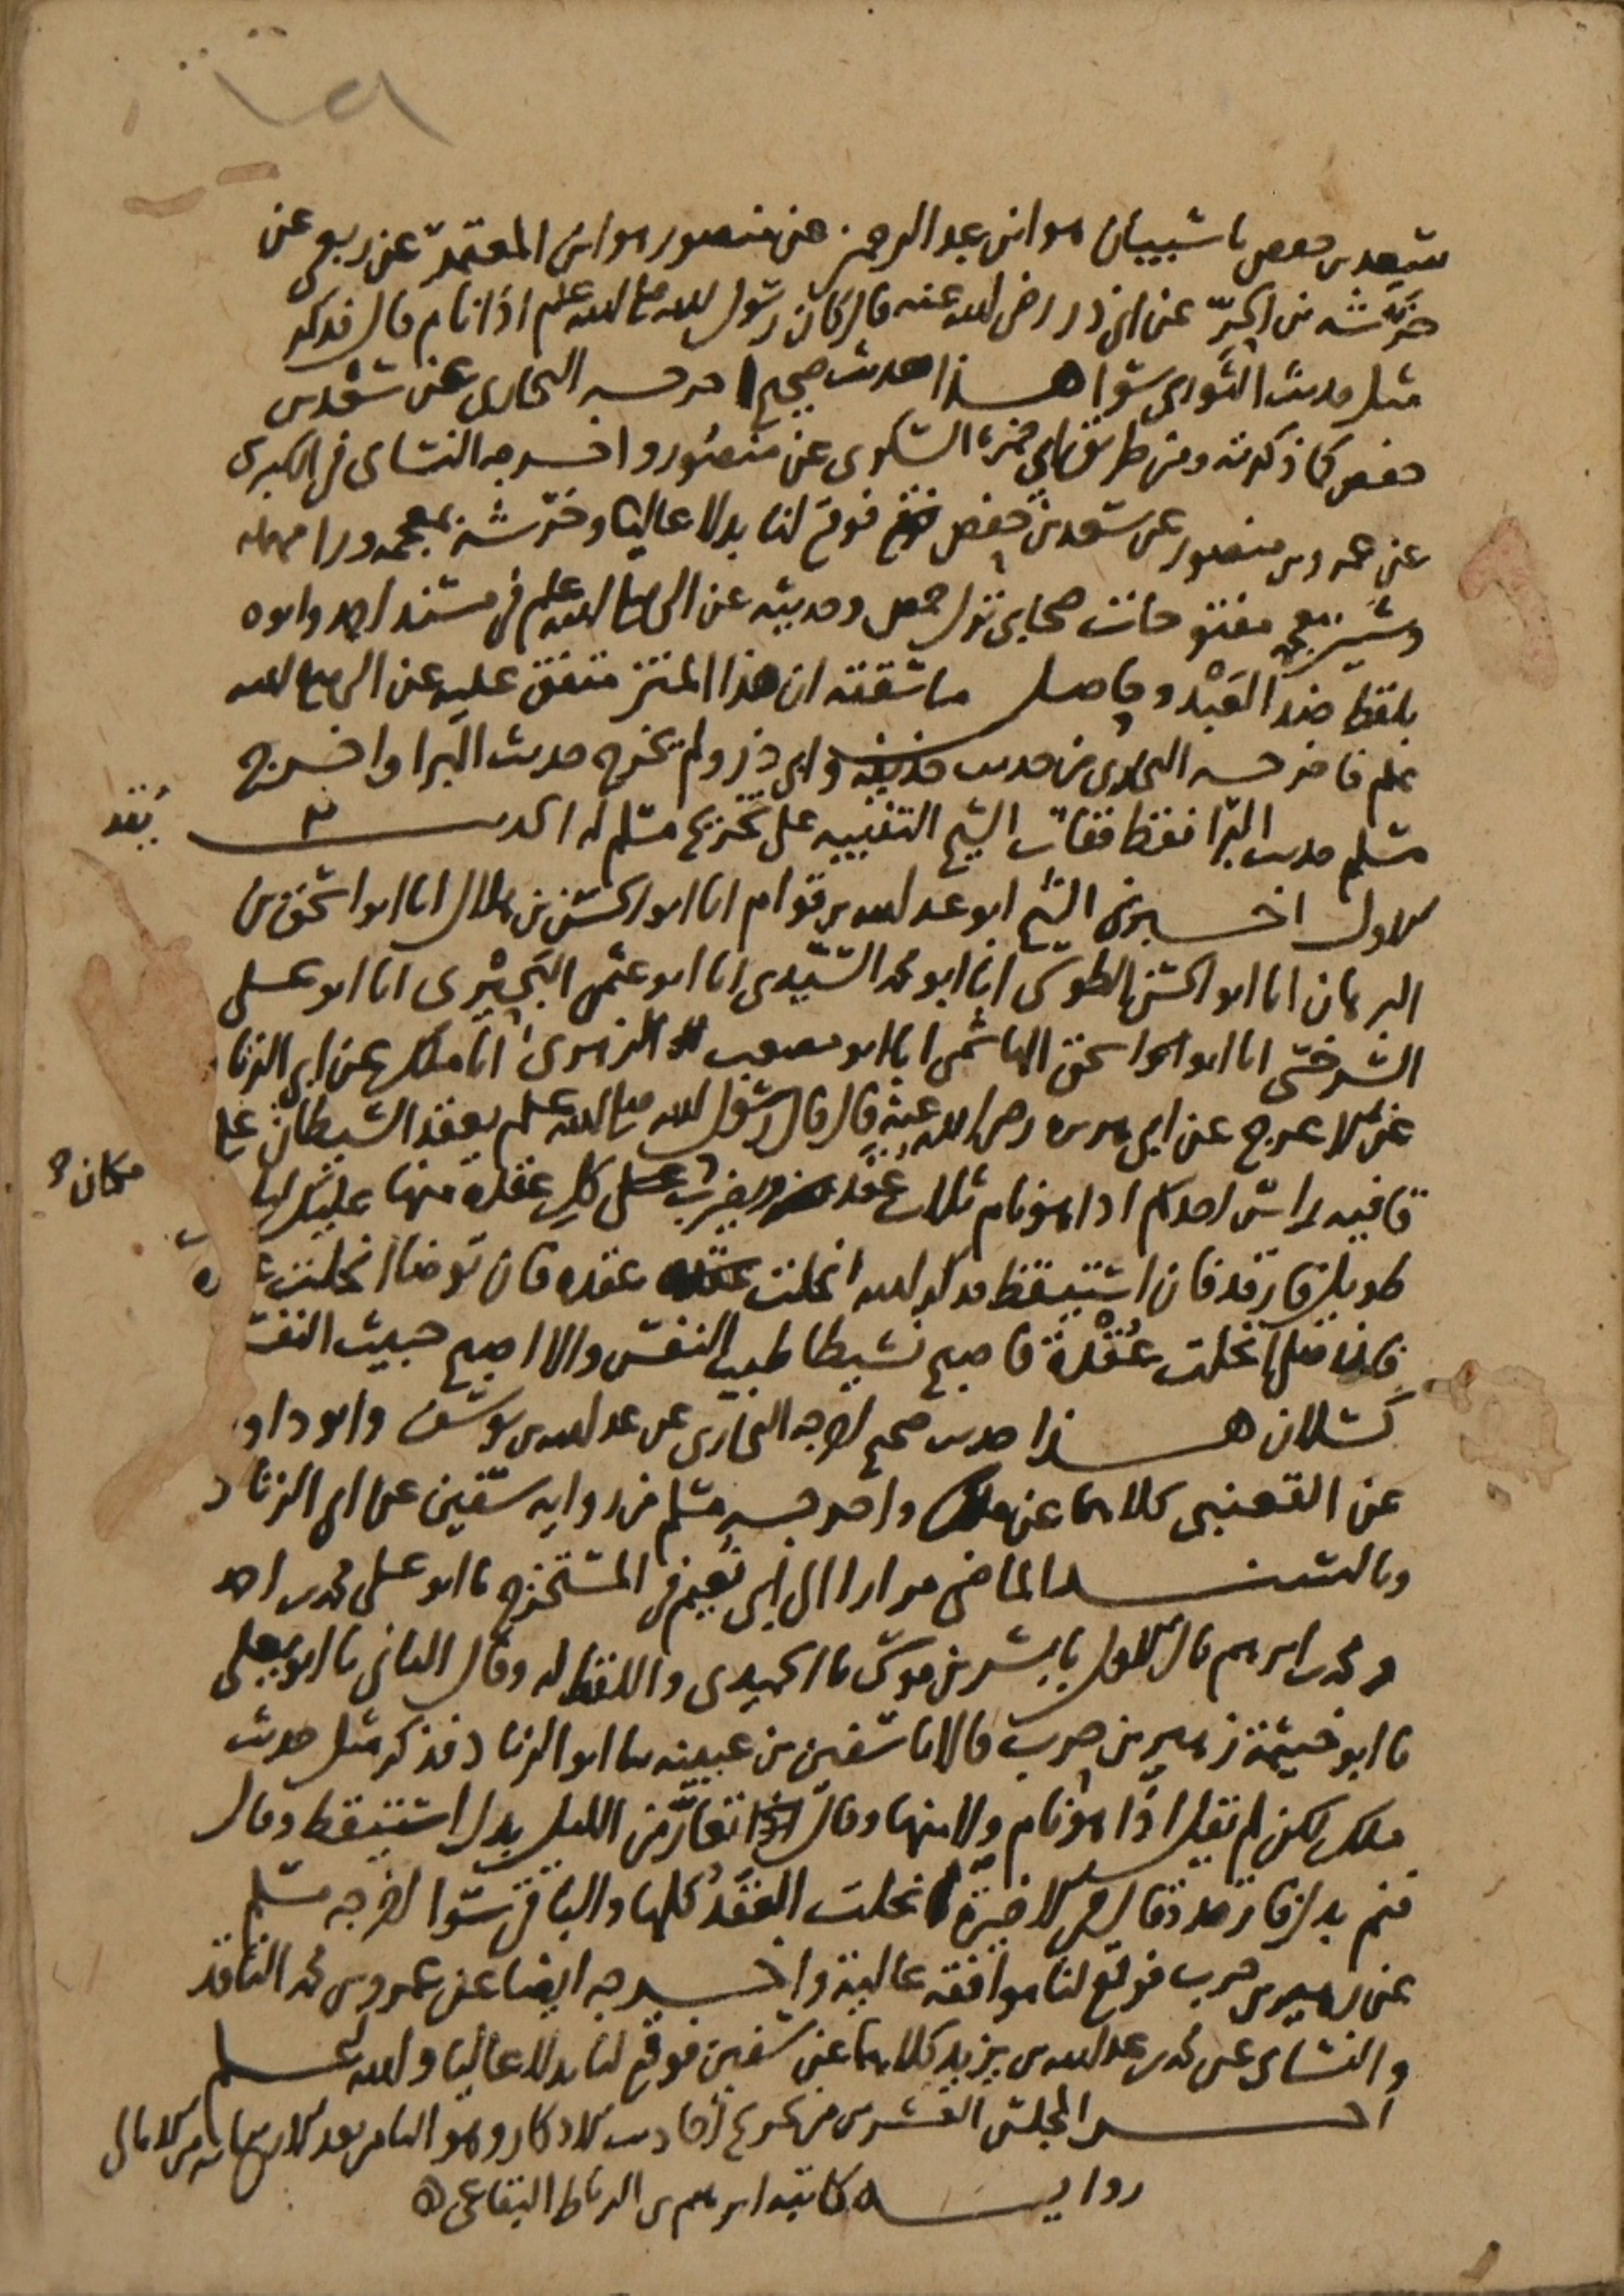 سعد بن حفص نا شيبان هو ابن عبد الرحمن عن منصور هو ابن المعتمر عن ربعي عن
خرشة بن الحر عن ابي ذر رضي الله عنه قال كان رسول الله صلى الله عليه وسلم اذا نام قال فذكر
مثل حديث الثوري سوا هذا حديث صحيح اخرجه البخاري عن سعد بن
حفص كما ذكرته ومن طريق ابي حمزة السكري عن منصور واخرجه النسائي في الكبرى
عن عمرو بن منصور عن سعد بن حفص فوقع لنا بدلا عاليا وخرشة بمعجمه ورا مهمله
وشين معجمه مفتوحات صحابي نزل حمص وحديثه عن النبي صلى الله عليه وسلم في مسند احمد وابوه
بلفظ ضد العبد وحاصل ما سقته ان هذا المتن متفق عليه عن النبي صلى الله
عليه وسلم فاخرجه البخاري من حديث حذيفة وابي ذر ولم يخرج حديث البرا واخرج
مسلم حديث البرا فقط ففات الشيخ التنبيه على تخريج مسلم له الحديث ٣
يعقد
الاول اخبرني الشيخ ابو عبد الله بن قوام انا ابو الحسن بن هلال انا ابو اسحق بن
البرهان انا ابو الحسن الطوسي انا ابو محمد السيدي انا ابو عثمن البحيري انا ابو علي
السرخسي انا ابو اسحق الهاشمي انا ابو مصعب الزهري انا ملك عن ابي الزنا
عن الاعرج عن ابي هريرة رضي الله عنه قال قال رسول الله صلى الله عليه وسلم يعقد الشيطان على
قافية راس احدكم اذا هو نام ثلاث عقد ويضرب على كل عقدة منها عليك ليل
مكان
طويل فارقد فان استيقظ فذكر الله انحلت عقده فان توضا انحلت
فان صلى انحلت عقدة فاصبح نشيطا طيب النفس والا اصبح خبيث النفس
كسلان هذا حديث صحيح اخرجه البخاري عن عبد الله بن يوسف وابو داود
عن القعنبي كلاهما عن ملك واخرجه مسلم من رواية سفين عن ابي الزناد
وبالسند الماضي مرارا الى ابي نعيم في المستخرج نا ابو علي محمد بن احمد
ومحمد بن ابرهيم قال الاول نا بشر بن موسى نا الحميدي واللفظ له وقال الثاني نا ابو يعلى
نا ابو خيثمة زهير بن حرب قالا نا سفين بن عيينه نا ابو الزناد فذكر مثل حديث
ملك لكن لم يقل اذا هو نام ولا منها وقال اذا تعار من الليل بدل استيقظ وقال
فنم بدل فارقد وقال في الاخيرة انحلت العقد كلها والباقي سوا اخرجه مسلم
عن زهير بن حرب فوقع لنا موافقة عالية واخرجه ايضا عن عمرو بن محمد الناقد
والنسائي عن محمد بن عبد الله بن يزيد كلاهما عن سفين فوقع لنا بدلا عاليا والله اعلم
اخر المجلس العشرين من تخريج احاديث الاذكار وهو الثامن بعد الاربعمايه من الامالي
رواية كاتبه ابرهيم بن الرباط البقاعي